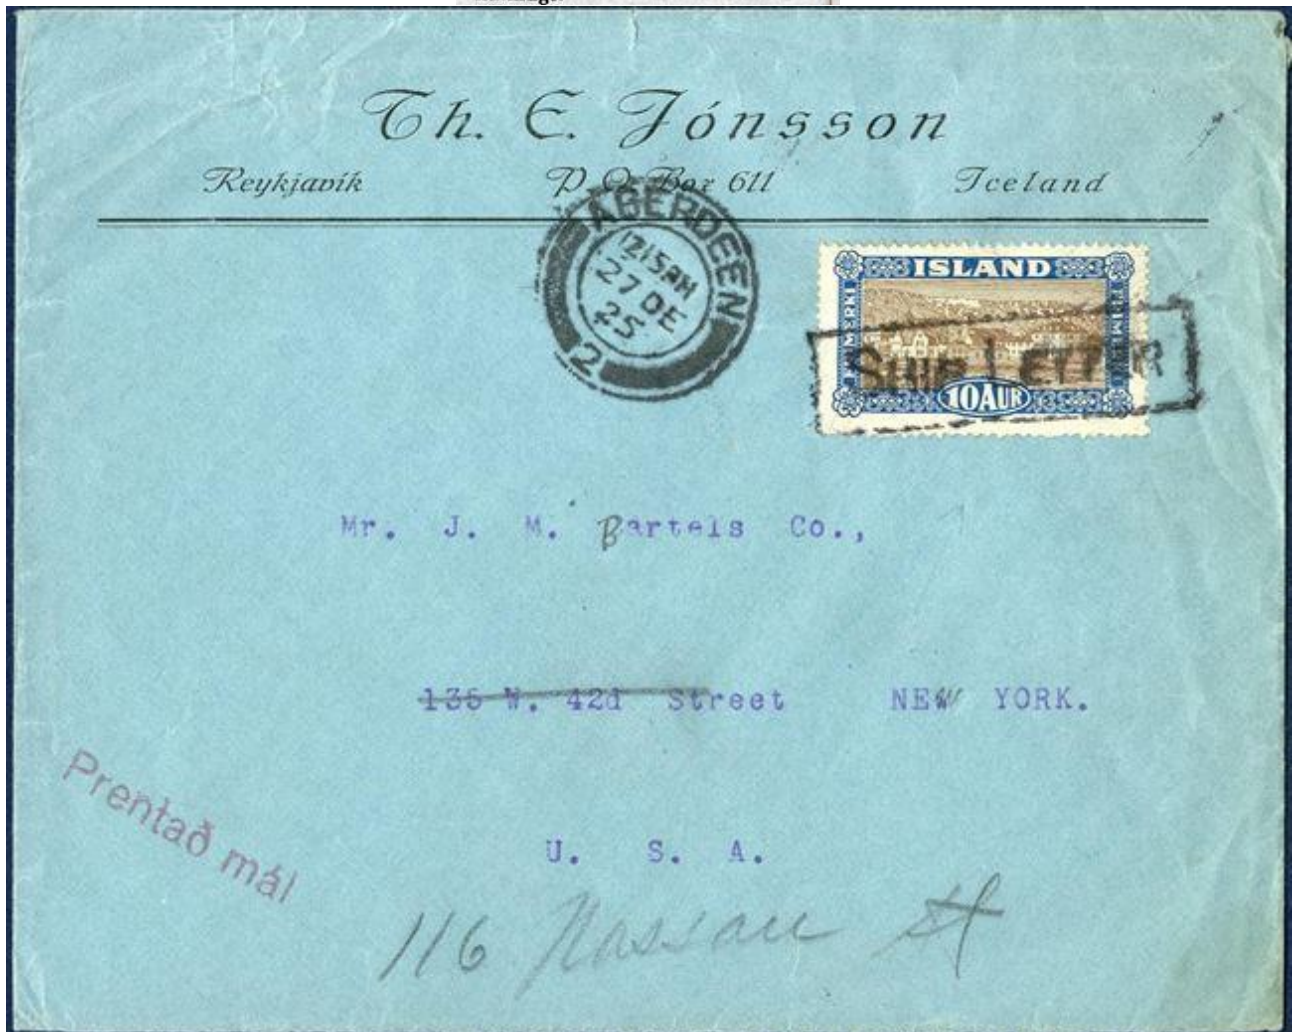 Th. E. Jónsson
Reykjavík P. O. Box 611 Iceland
ABERDEEN
1215AM
27 DE
25
2
ISLAND
FRÍMERKI
10AUR
SHIP LETTER
Mr. J. M. Bartels Co.,
135 W. 42d Street NEW YORK.
U. S. A.
Prentað mál
116 Nassau St